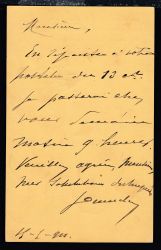 Monsieur,
En réponse à votre
postale du 13 ct.
je passerai chez
vous
matin 9 heures.
Veuillez agréer, Monsieur,
mes Salutations